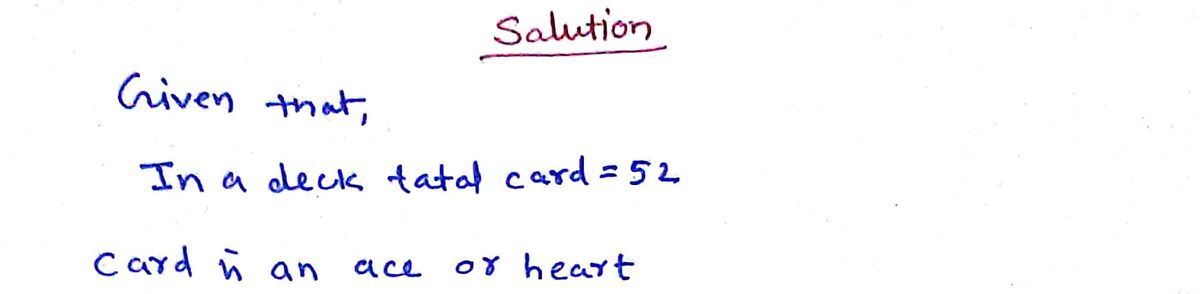 Salution
Given that,
In a deck tatal card = 52
Card is an ace or heart